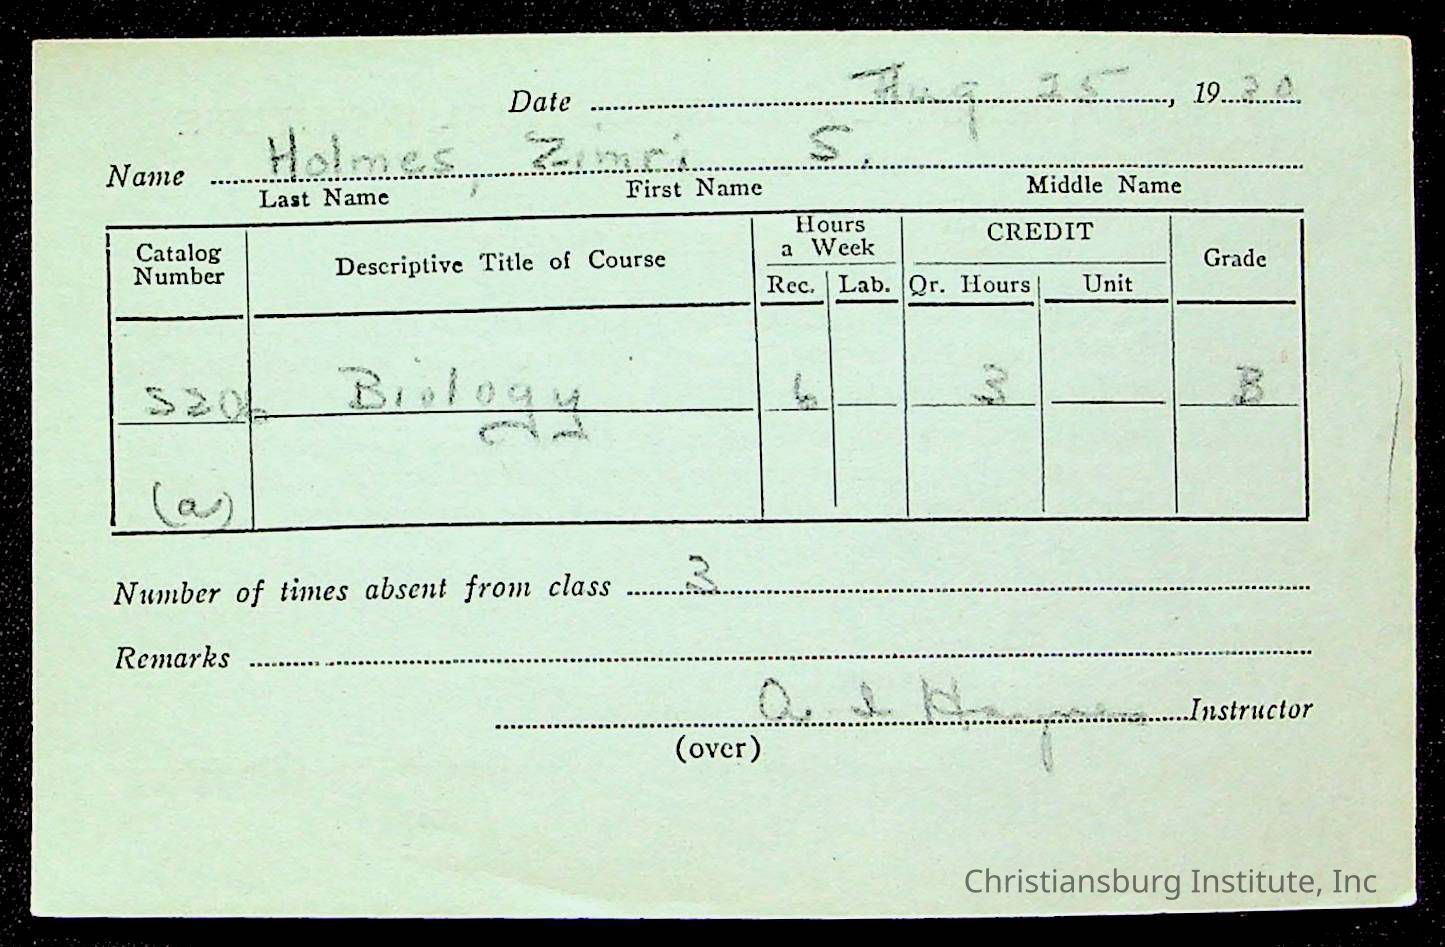 Date Aug 25, 1930
Name Holmes, Zimri S.
Last Name First Name Middle Name
Catalog Number Descriptive Title of Course Hours a Week CREDIT Grade
Rec. Lab. Qr. Hours Unit
S20b Biology 6 3 B
(a)
Number of times absent from class 3
Remarks
A. I Haynes Instructor
(over)
Christiansburg Institute, Inc